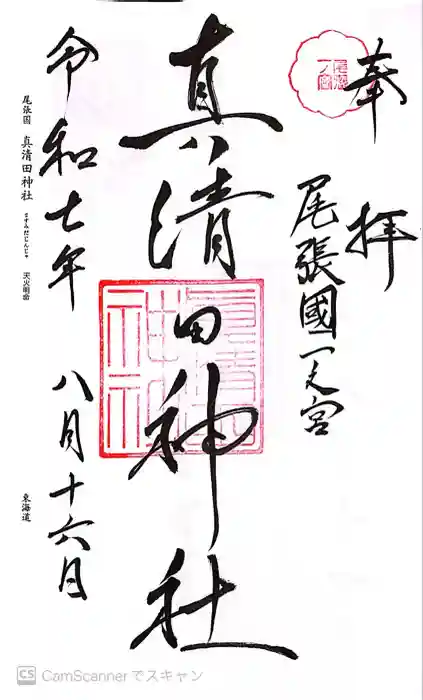 奉拝
尾張國一之宮
尾張一ノ宮
真清田神社
真清田神社
令和七年 八月十六日
尾張国 真清田神社 ますみだじんじゃ 天火明命
東海道
CS CamScannerでスキャン